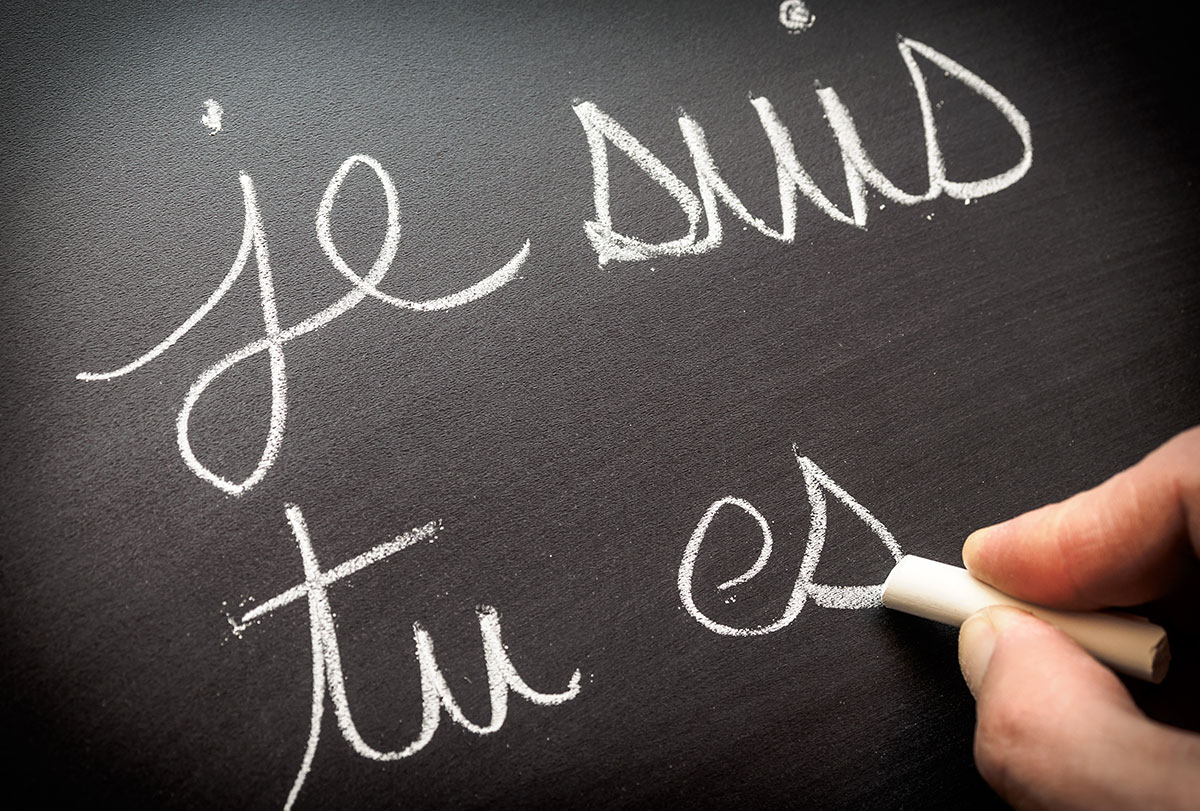 je suis
tu es